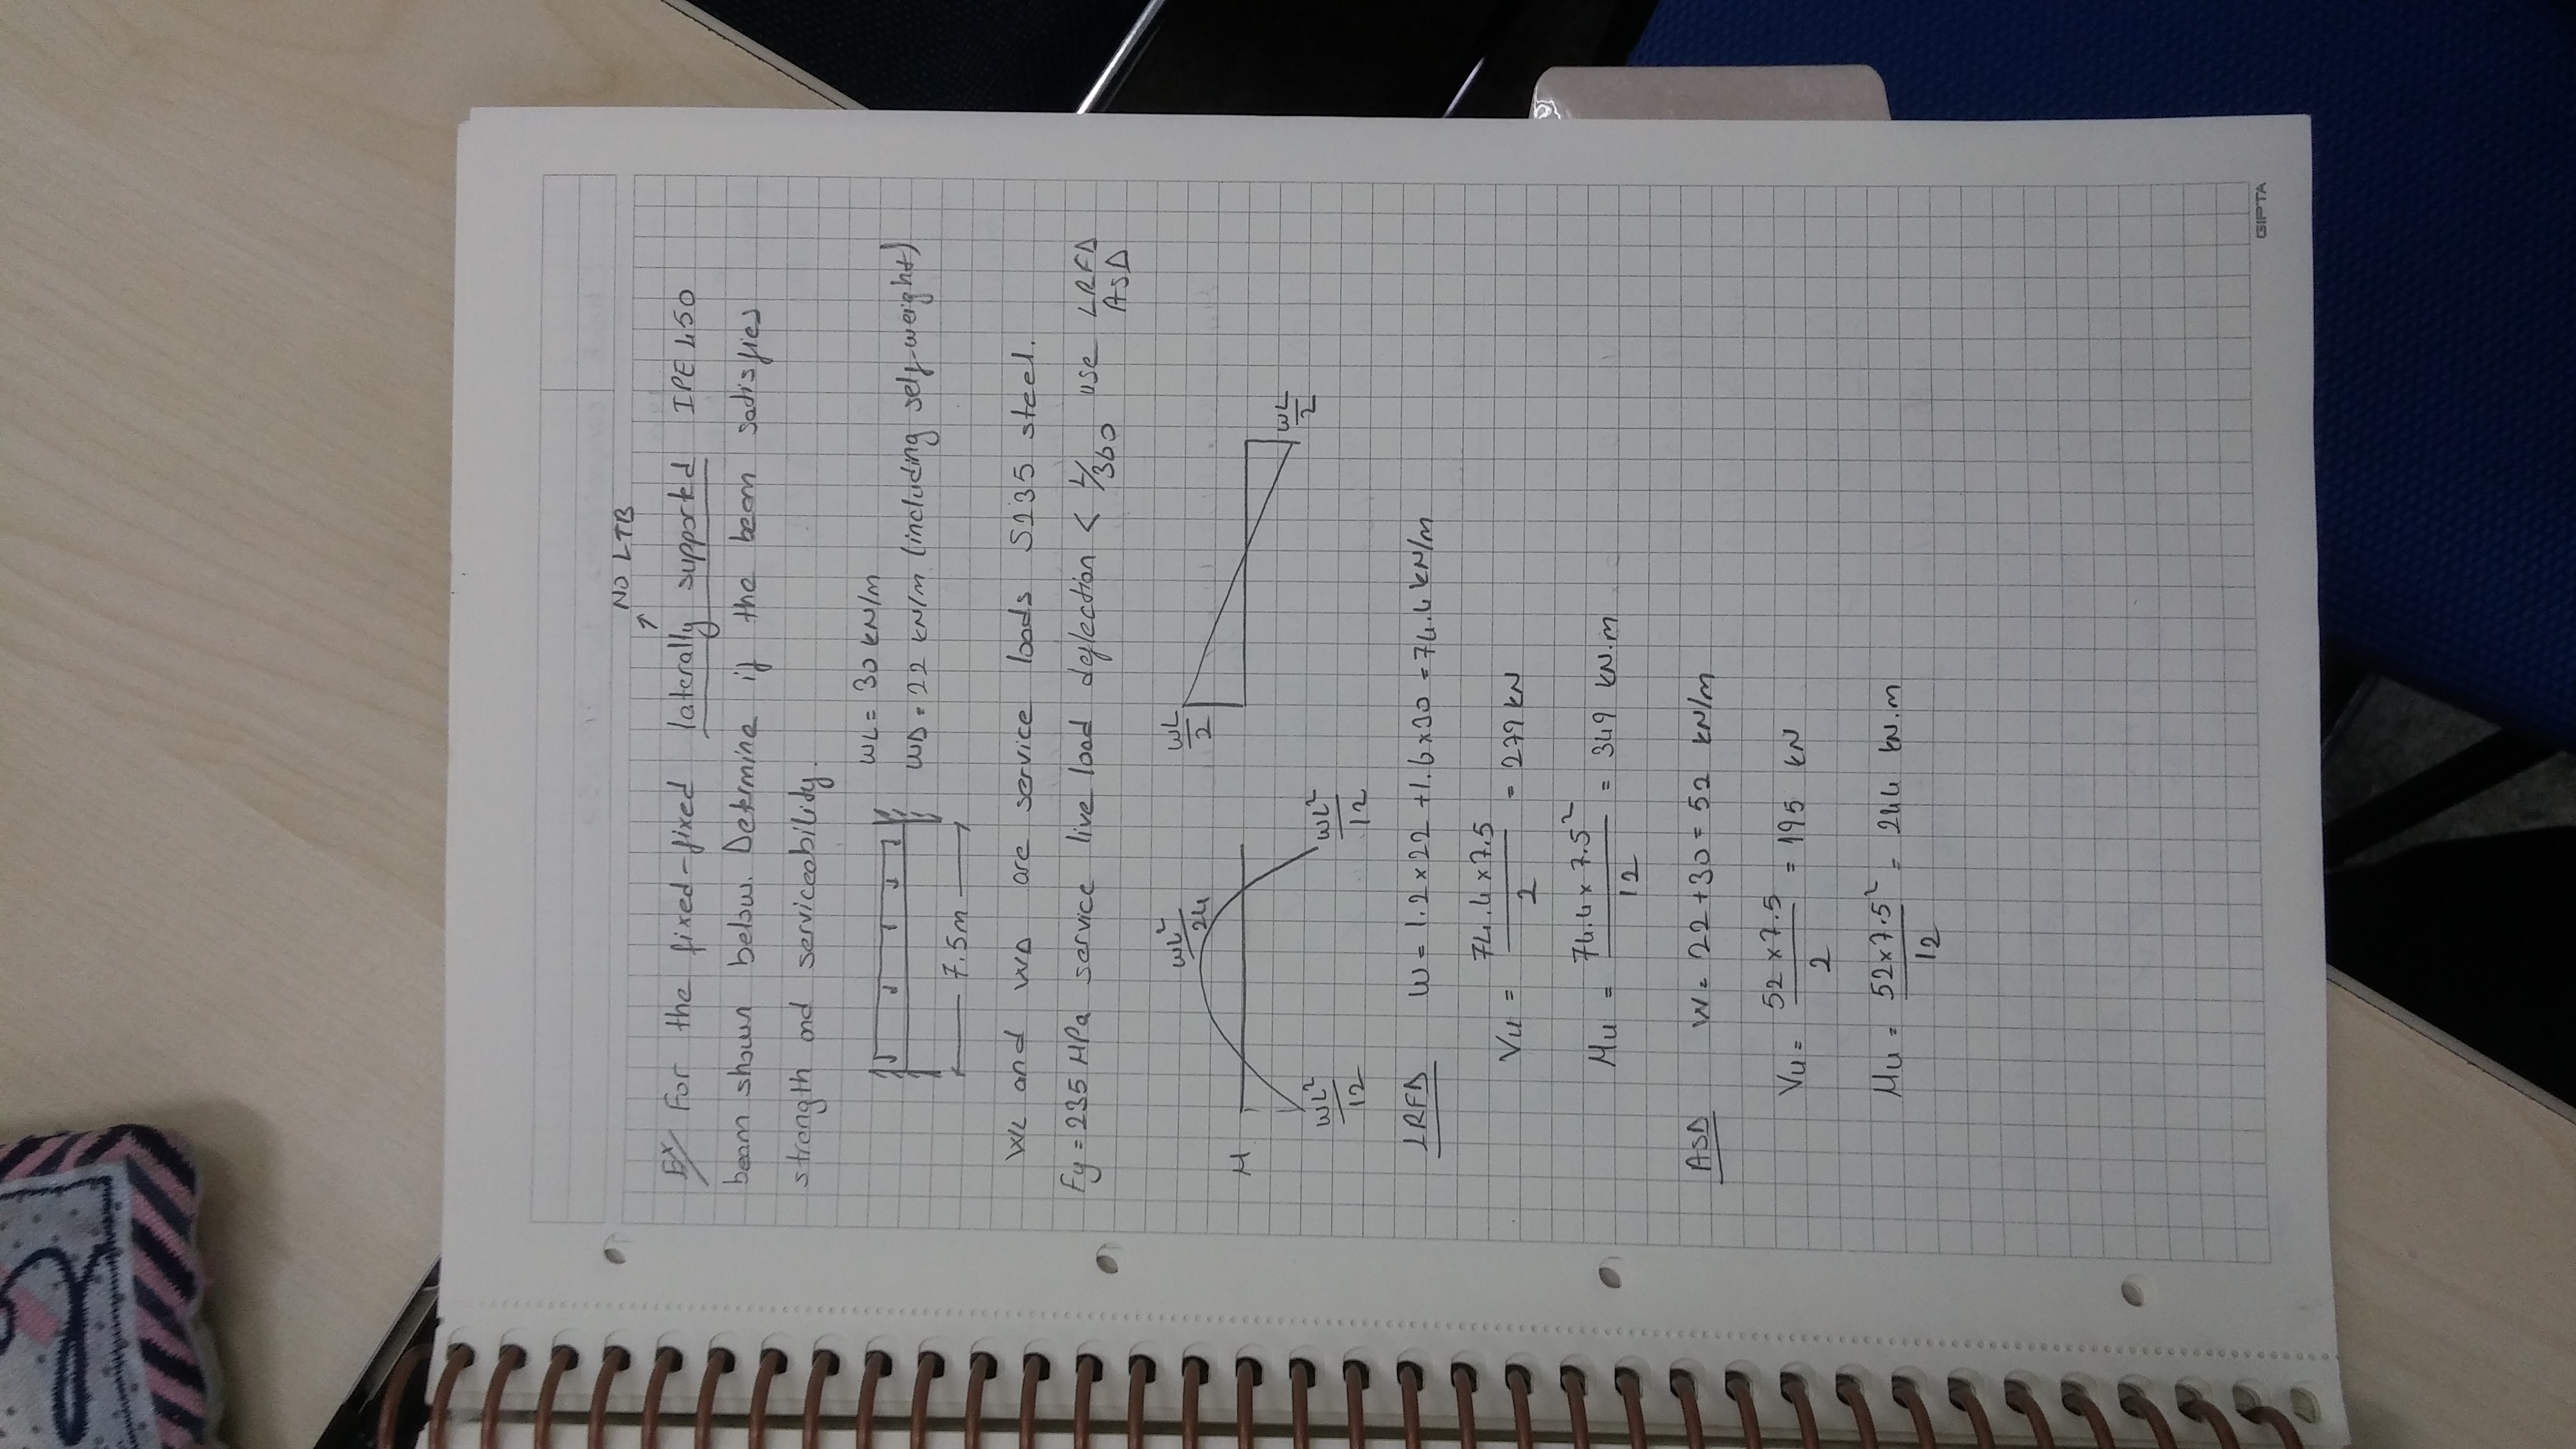 NO LTB
Ex/ For the fixed-fixed laterally supported IPE 450
beam shown below. Determine if the beam satisfies
strength and serviceability.
WL = 30 kN/m
WD = 22 kN/m (including self-weight)
7.5m
WL and WD are service loads S235 steel.
Fy = 235 MPa service live load deflection < L/360 use LRFD
ASD
wL²/24
wL/2
M
wL/2
wL²/12
wL²/12
LRFD W = 1.2 x 22 + 1.6 x 30 = 74.4 kN/m
Vu = 74.4 x 7.5 / 2 = 279 kN
Mu = 74.4 x 7.5² / 12 = 349 kN.m
ASD W = 22 + 30 = 52 kN/m
Vu = 52 x 7.5 / 2 = 195 kN
Mu = 52 x 7.5² / 12 = 244 kN.m
GIPTA